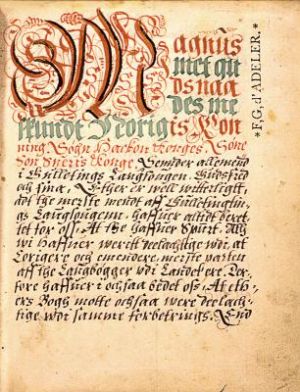 Magnus
met gu
ds naa
des me
skundt Norig is Kon
ning Søgn Hackon Konges. Søne
Søn Sueris Konge Sender allemend
i Gulletings Laugsognen. Gudsfred
och sina. Ether er well witterligt,
adt the merste mendt aff Gulletingtin
gs Laugsognenn, haffuer altidt beret
tet for oss. At the haffuer Spurt. Ath
wi haffuer werett deelachtige wdi at
Corrigere och emendere, merste parten
aff the Laugbøgger wdi Landet ere. Der,
fore haffuer i ochsaa bedet oss. At eth
ers Bogh motte ochsaa were deelach-
tige wdi samme forbetrings. End
*F.G. d'ADELER.*